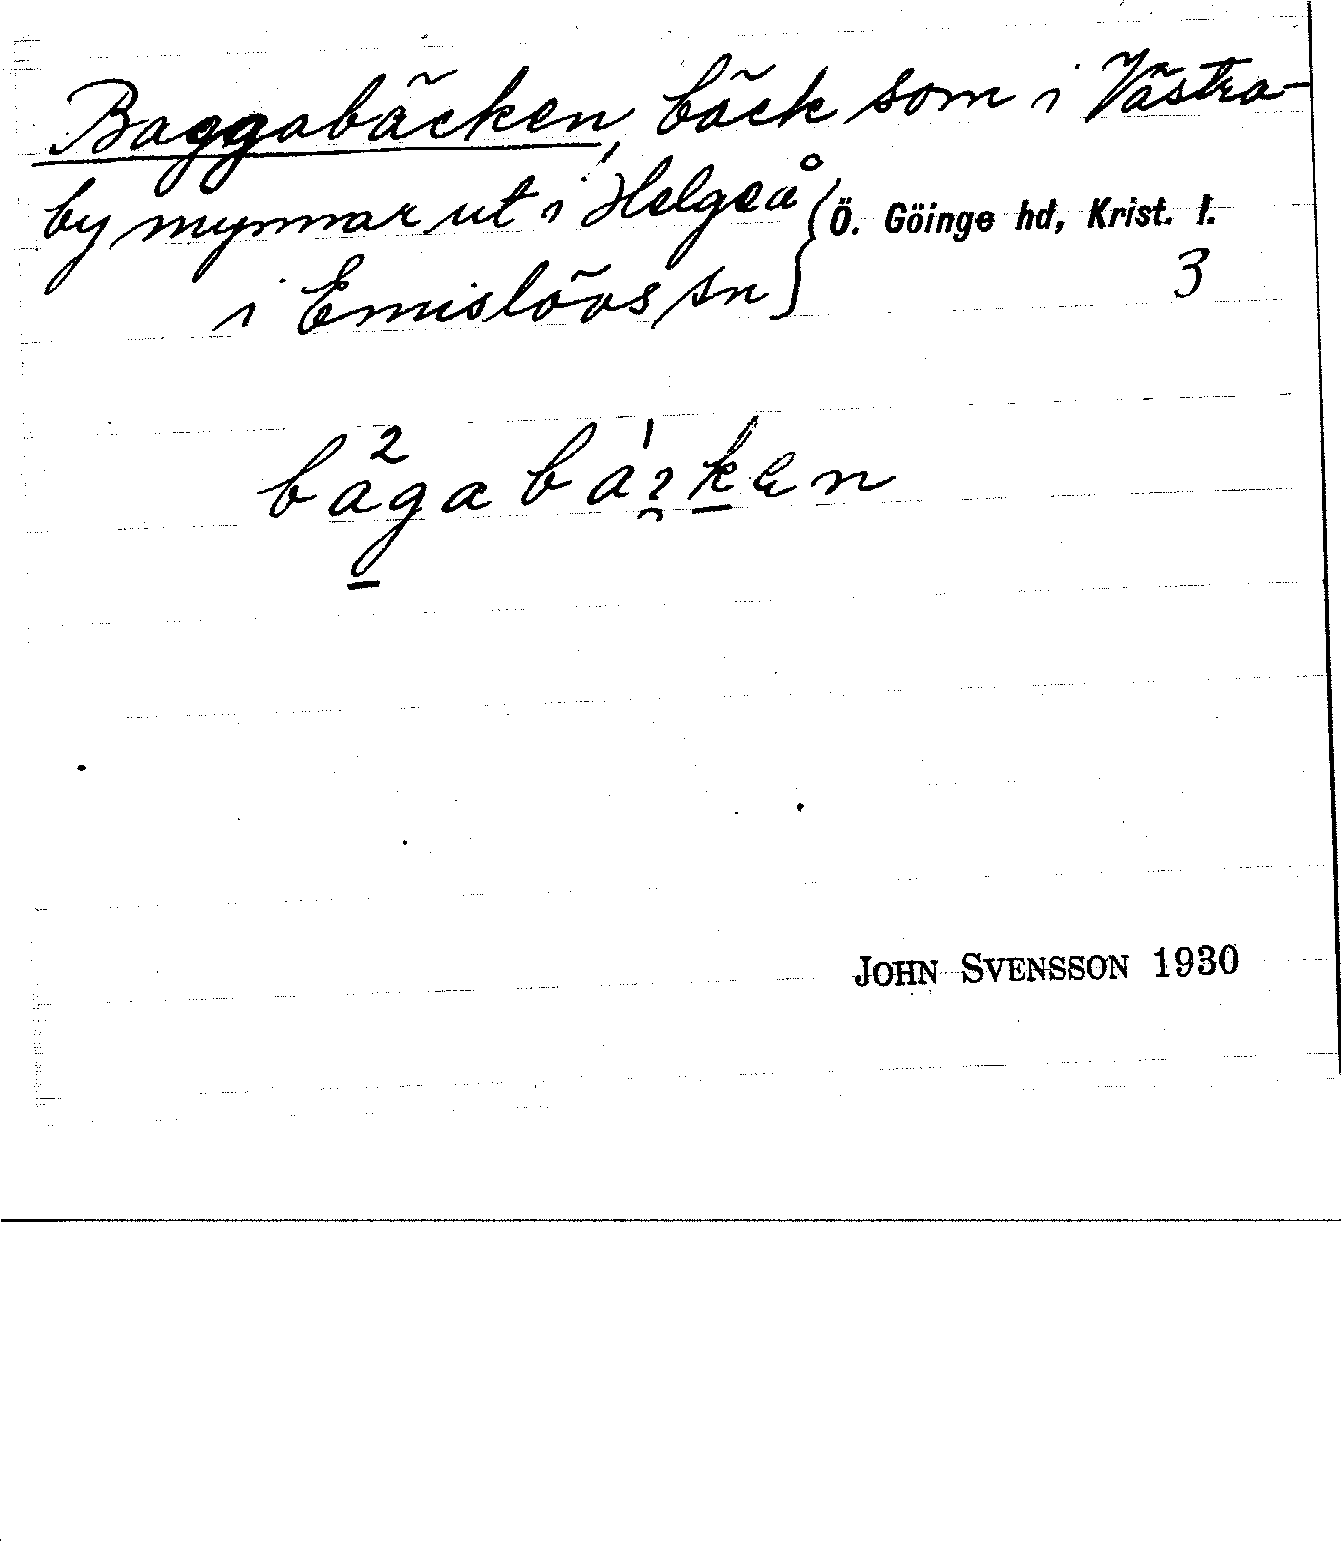 Baggabäcken, bäck som i Västra-
by mynnar ut i Helgeå } Ö. Göinge hd, Krist. l.
i Emislövs sn } 3
John Svensson 1930